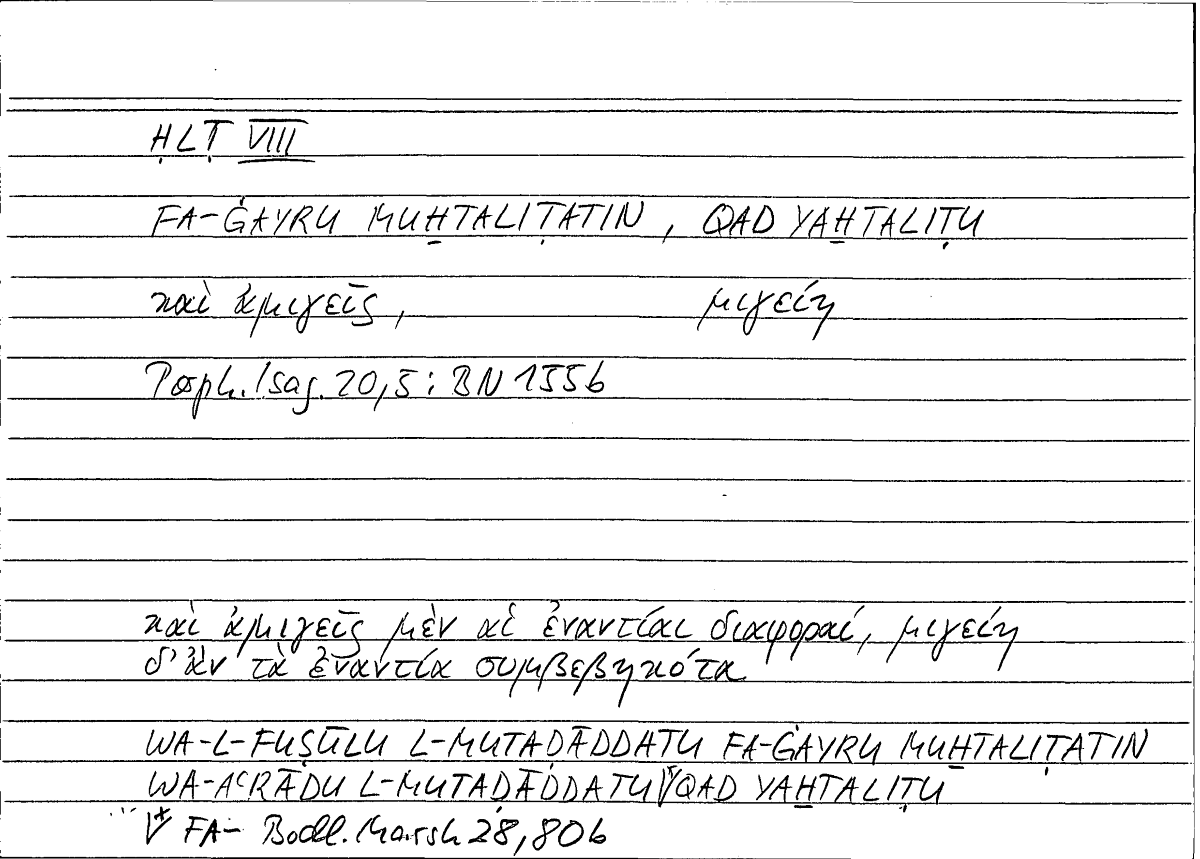 ḤLṬ VIII
FA-ĠAYRU MUH̱TALIṬATIN, QAD YAH̱TALIṬU
καὶ ἀμιγεῖς, μιγείη
Porph. Isag. 20,5: BN 155b
καὶ ἀμιγεῖς μὲν αἱ ἐναντίαι διαφοραί, μιγείη
δ' ἂν τὰ ἐναντία συμβεβηκότα
WA-L-FUṢŪLU L-MUTAḌĀDDATU FA-ĠAYRU MUH̱TALIṬATIN
WA-AʿRĀḌU L-MUTAḌĀDDATU QAD YAH̱TALIṬU
FA- Bodl. Marsh 28, 80b